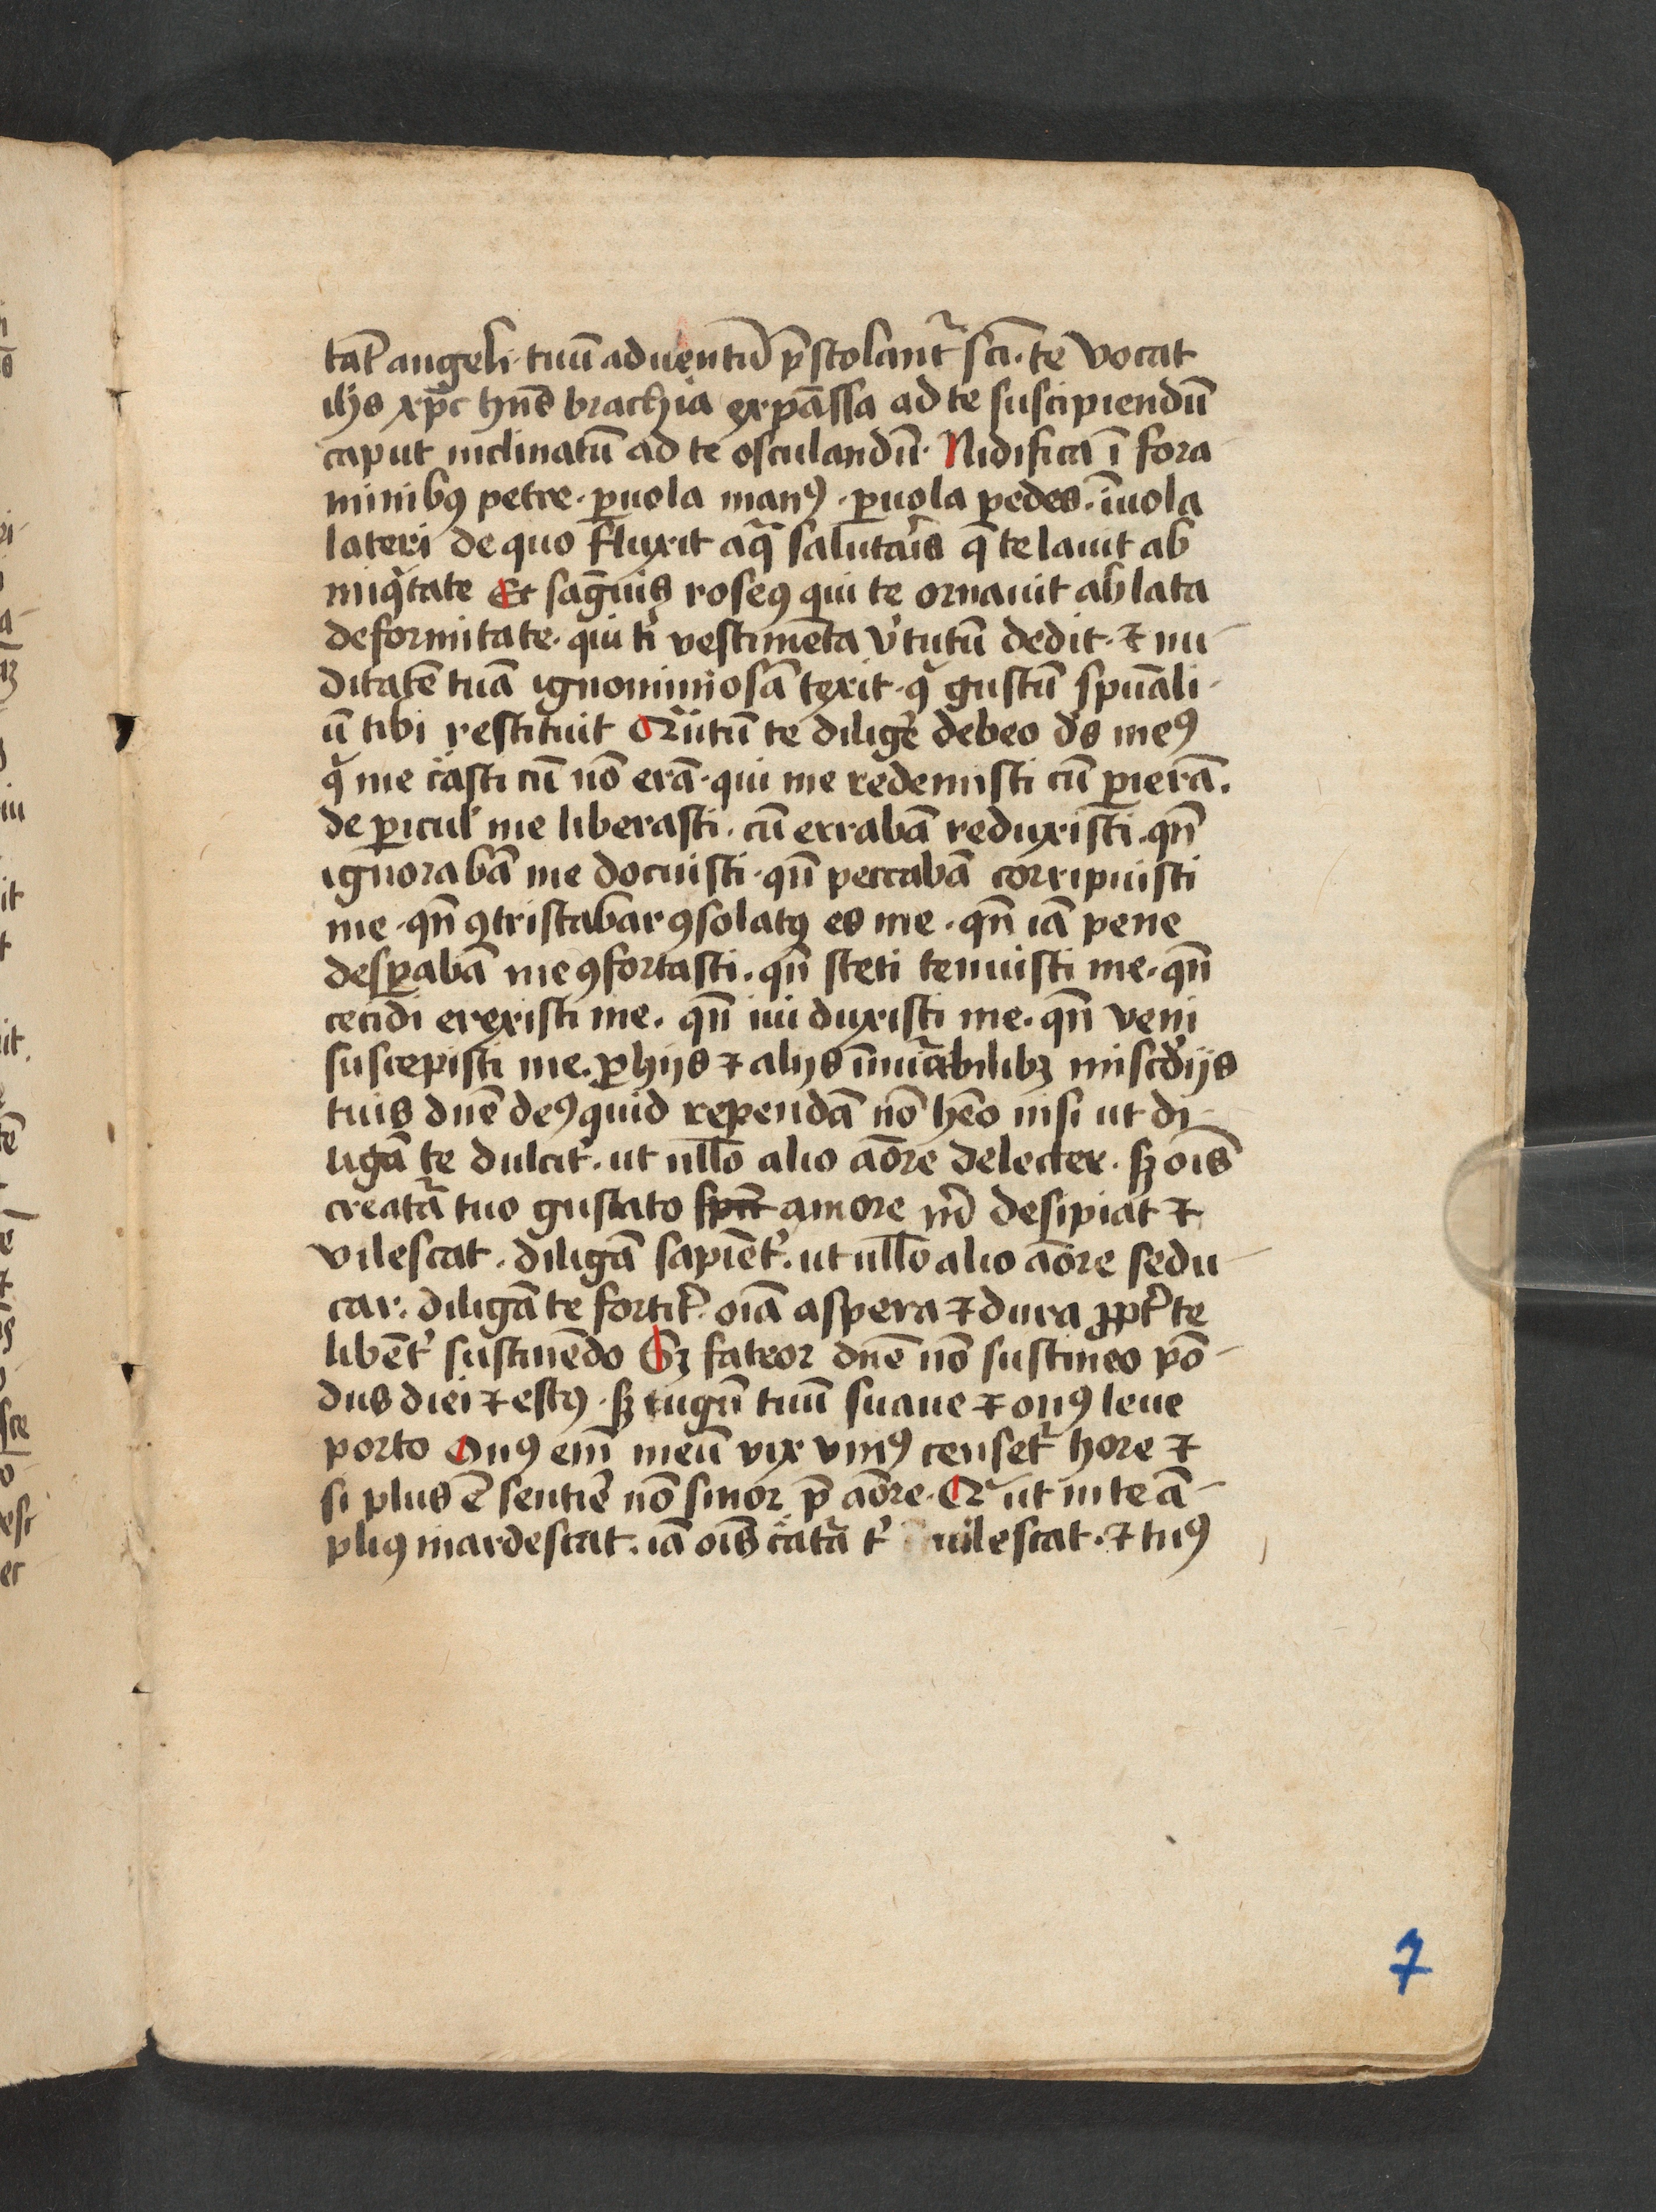 tat᷑ angeli · tuū aduentū p̄stolant᷑ sc̄i · te vocat
ihs xp̄c hn̄s brachia expāssa ad te suscipiendū
caput inclinatū ad te osculandū · Nidifica ī fora
minibꝯ petre · ꝑuola manꝯ · ꝑuola pedes · īuola
lateri de quo fluxit aq̄ salutar̄is q̄ te lauit ab
iniqͥtate Et sāgwis roseꝯ qui te ornauit ablata
deformitate · qui tͥ vestimēta v᷑tutū dedit · ⁊ nu-
ditatē tuā ignominiosā texit · qͥ gustū spūali-
ū tibi restituit Qͣntū te dilig᷑e debeo ds̄ meꝯ
qͥ me c᷑asti cū nō erā · qui me redemisti cū ꝑierā ·
de ꝑicul᷑ me liberasti · cū errabā reduxisti · qn̄
ignorabā me docuisti · qn̄ peccabā corripuisti
me · qn̄ ꝯtristabar ꝯsolatꝯ es me · qn̄ iā pene
desꝑabā me ꝯfortasti · qn̄ steti tenuisti me · qn̄
cecidi erexisti me · qn̄ iui duxisti me · qn̄ veni
suscepisti me · ꝓ hijs ⁊ alijs īnuͣabilibꝫ misc᷑dijs
tuis dn̄e deꝯ quid rependā nō hēo nisi ut di-
ligā te dulcit᷑ · ut nll̄o alio āōre delecter · sꝫ oīs
creatͣa tuo gustato sp̄u amore m̄ desipiat ⁊
vilescat · diligā sapiēt᷑ · ut nll̄o alio āōre sedu-
car · diligā te fortit᷑ · oīa aspera ⁊ dura ꝓpt᷑ te
libēt᷑ sustinēdo Sꝫ fateor dn̄e nō sustineo pō-
dus diei ⁊ estꝯ · sꝫ iugū tuū suaue ⁊ onꝯ leue
porto Onꝯ em̄ meū vix vniꝯ censet᷑ hore ⁊
si plus ē sentir̄e nō sinor p̄ āōre · Qͣ ut in te ā-
pliꝯ inardescat · iā oīs c᷑atͣa tͥ vilescat · ⁊ tuꝯ
7